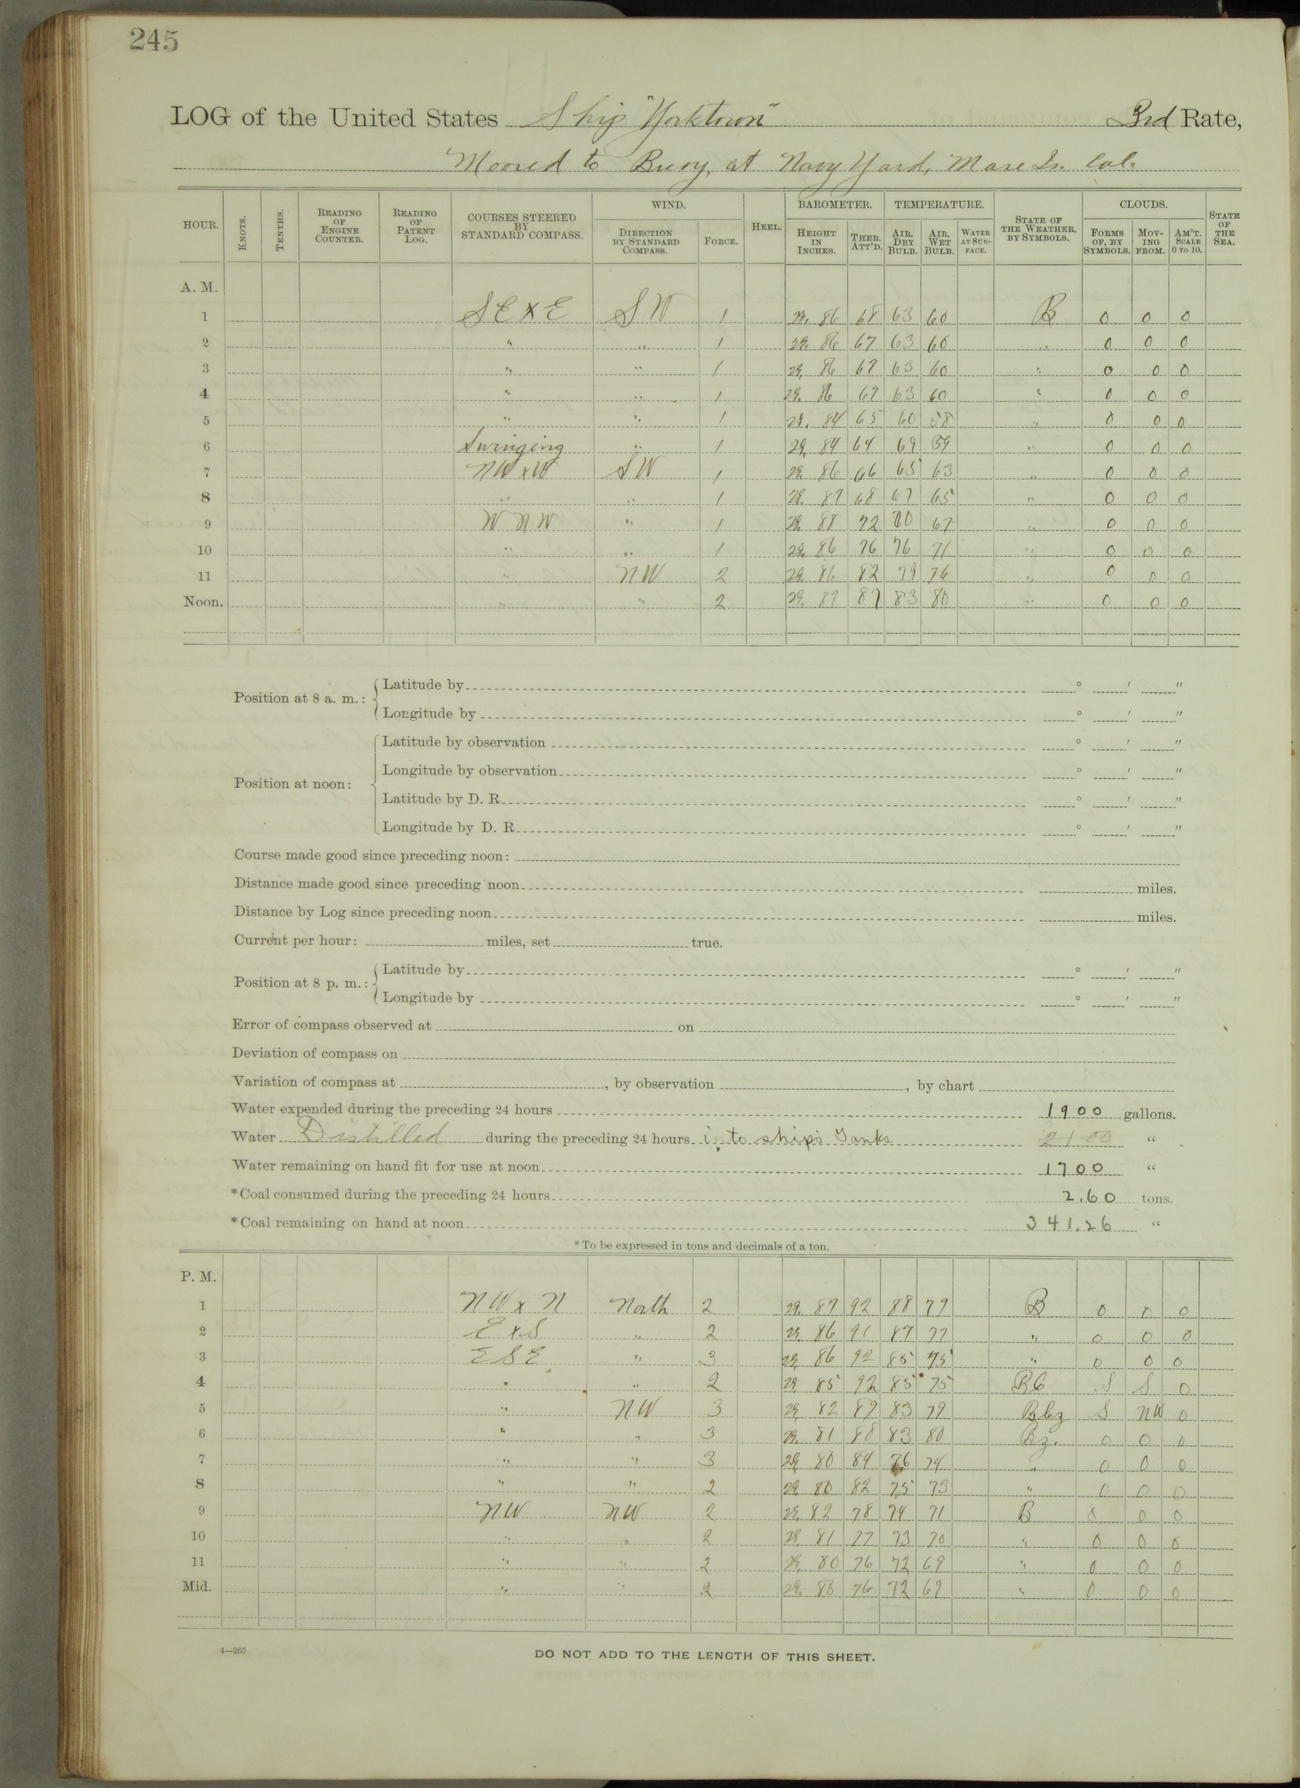 245
LOG of the United States Ship "Yorktown" 3rd Rate,
Moored to Buoy, at Navy Yard, Mare Is. Cal.
HOUR. KNOTS. TENTHS. READING OF ENGINE COUNTER. READING OF PATENT LOG. COURSES STEERED BY STANDARD COMPASS. WIND. DIRECTION BY STANDARD COMPASS. FORCE. HEEL. BAROMETER. HEIGHT IN INCHES. THER. ATT'D. TEMPERATURE. AIR, DRY BULB. AIR, WET BULB. WATER AT SURFACE. STATE OF THE WEATHER, BY SYMBOLS. CLOUDS. FORMS OF, BY SYMBOLS. MOVING FROM. AM'T. SCALE 0 TO 10. STATE OF THE SEA.
A. M.
1 SE x E SW 1 29. 86 68 63 60 B 0 0 0
2 " " 1 29. 86 67 63 60 " 0 0 0
3 " " 1 29. 86 67 63 60 " 0 0 0
4 " " 1 29. 86 67 63 60 " 0 0 0
5 " " 1 29. 84 65 60 58 " 0 0 0
6 Swinging " 1 29. 84 64 59 " 0 0 0
7 NW x W SW 1 29. 86 66 65 63 " 0 0 0
8 " " 1 29. 87 68 67 65 " 0 0 0
9 WNW " 1 29. 88 72 70 67 " 0 0 0
10 " " 1 29. 86 76 76 71 " 0 0 0
11 " NW 2 29. 86 82 79 76 " 0 0 0
Noon. " " 2 29. 87 87 83 80 " 0 0 0
Position at 8 a. m.: Latitude by ° ′ ″
Longitude by ° ′ ″
Position at noon: Latitude by observation ° ′ ″
Longitude by observation ° ′ ″
Latitude by D. R. ° ′ ″
Longitude by D. R. ° ′ ″
Course made good since preceding noon:
Distance made good since preceding noon miles.
Distance by Log since preceding noon miles.
Current per hour: miles, set true.
Position at 8 p. m.: Latitude by ° ′ ″
Longitude by ° ′ ″
Error of compass observed at on
Deviation of compass on
Variation of compass at , by observation , by chart
Water expended during the preceding 24 hours 1900 gallons.
Water Distilled during the preceding 24 hours into ship's Tanks 2100 "
Water remaining on hand fit for use at noon 1700 "
*Coal consumed during the preceding 24 hours 2.60 tons.
*Coal remaining on hand at noon 341.26 "
*To be expressed in tons and decimals of a ton.
P. M.
1 NW x N North 2 29. 87 92 88 79 B 0 0 0
2 E x S " 2 29. 86 91 87 77 " 0 0 0
3 ESE " 3 29. 86 92 85 75 " 0 0 0
4 " " 2 29. 85 92 85 75 Bc S S 0
5 " NW 3 29. 82 89 83 79 Bcz S NW 0
6 " " 3 29. 81 88 83 80 Bz. 0 0 0
7 " " 3 29. 80 84 76 74 " 0 0 0
8 " " 2 29. 80 82 75 73 " 0 0 0
9 NW NW 2 29. 82 78 74 71 B 0 0 0
10 " " 2 29. 81 77 73 70 " 0 0 0
11 " " 2 29. 80 76 72 69 " 0 0 0
Mid. " " 2 29. 80 76 72 69 " 0 0 0
4—265
DO NOT ADD TO THE LENGTH OF THIS SHEET.